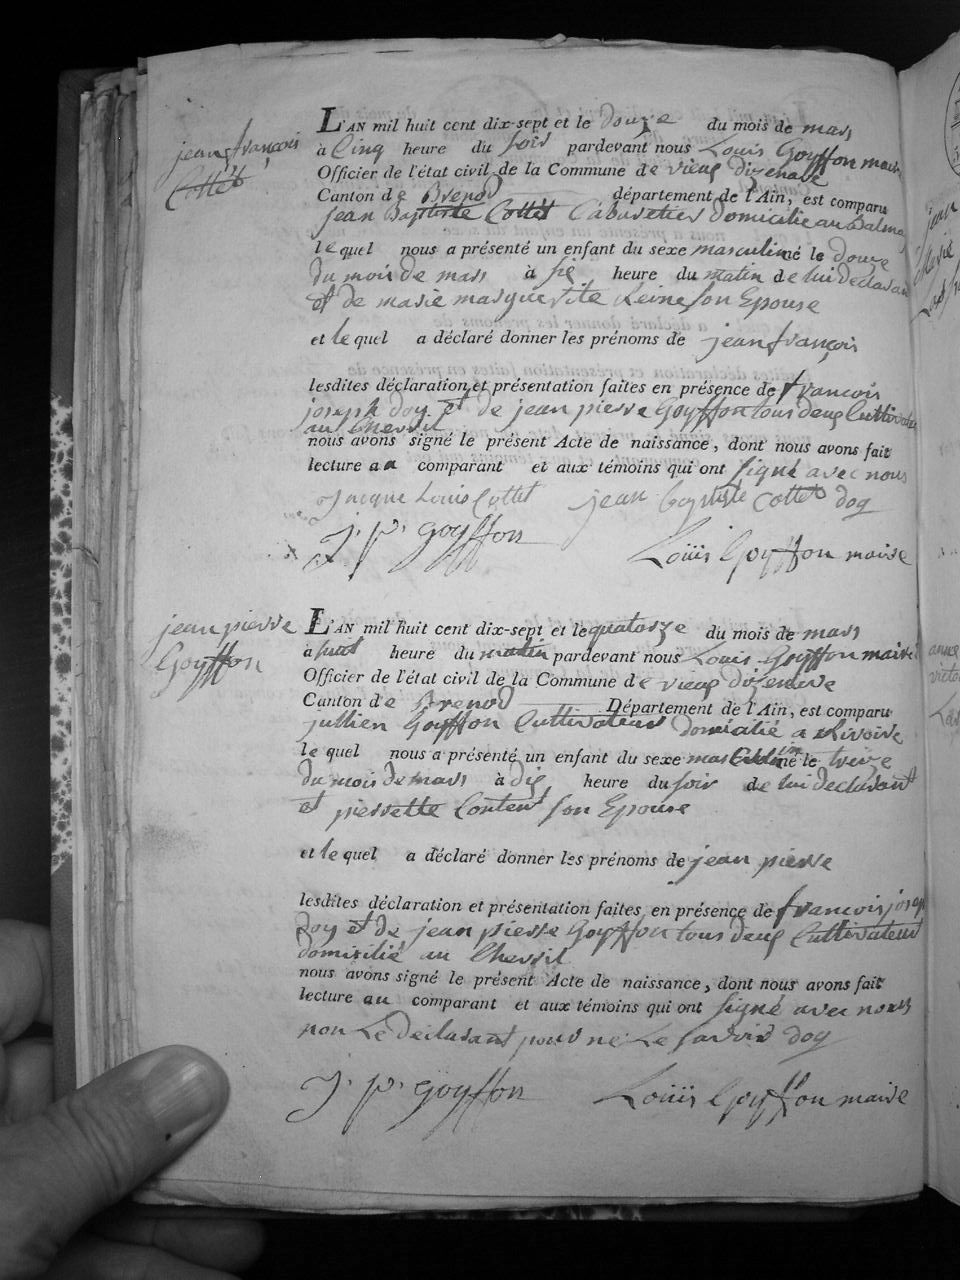 jean françois
Cottet
L'AN mil huit cent dix-sept et le douze du mois de mars
à Cinq heure du soir pardevant nous Louis Goyffon maire
Officier de l'état civil de la Commune de vieux dizenave
Canton de Brenod département de l'Ain, est comparu
jean Baptiste Cottet Cabaretier domicilie au Balmay
le quel nous a présenté un enfant du sexe masculin né le douze
du mois de mars à six heure du matin de lui déclarant
et de marie marguerite Reine son Epouse
et le quel a déclaré donner les prénoms de jean françois
lesdites déclaration et présentation faites en présence de francois
joseph doy et de jean pierre Goyffon tous deux Cultivateur
au Chevril
nous avons signé le présent Acte de naissance, dont nous avons fait
lecture au comparant et aux témoins qui ont signé avec nous
jacque Louis Cottet jean baptiste Cottet doy
J. P. Goyffon Louis Goyffon maire
jean pierre
Goyffon
L'AN mil huit cent dix-sept et le quatorze du mois de mars
à huit heure du matin pardevant nous Louis Goyffon maire
Officier de l'état civil de la Commune de vieux dizenave
Canton de Brenod Département de l'Ain, est comparu
jullien Goyffon Cultivateur domicilié a
le quel nous a présenté un enfant du sexe masculin né le treize
du mois de mars à dix heure du soir de lui déclarant
et pierrette Content son Epouse
et le quel a déclaré donner les prénoms de jean pierre
lesdites déclaration et présentation faites en présence de francois josep
doy et de jean pierre Goyffon tous deux Cultivateur
domicilié au Chevril
nous avons signé le présent Acte de naissance, dont nous avons fait
lecture au comparant et aux témoins qui ont signé avec nous
non Le déclarant pour ne Le savoir doy
J. P. Goyffon Louis Goyffon maire